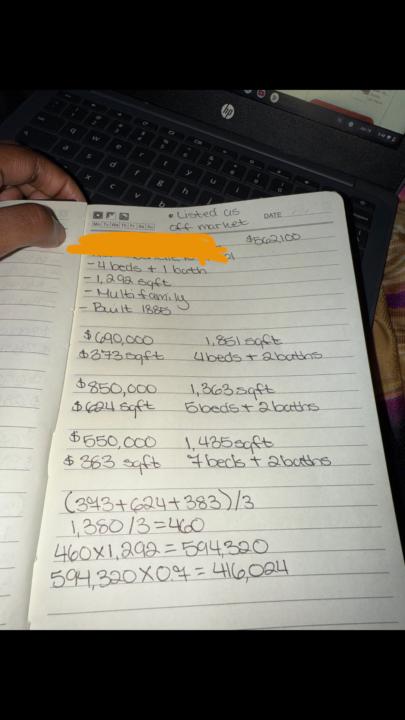 hp
• Listed as
off market
DATE
Mo Tu We Th Fr Sa Su
$562,100
- 4 beds + 1 bath
- 1,292 sqft
- Multifamily
- Built 1885
$690,000 1,851 sqft
$373 sqft 4 beds + 2 baths
$850,000 1,363 sqft
$624 sqft 5 beds + 2 baths
$550,000 1,435 sqft
$383 sqft 7 beds + 2 baths
(373+624+383)/3
1,380/3=460
460x1,292=594,320
594,320x0.7=416,024